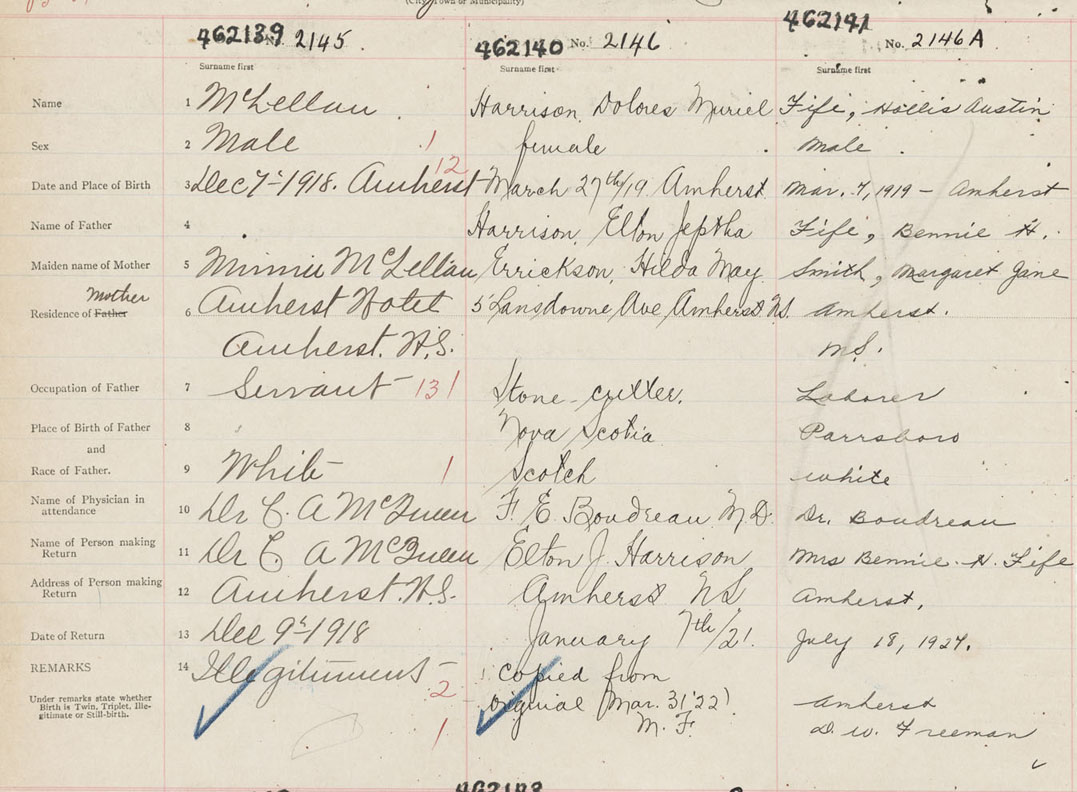 (City, Town or Municipality)
462139 No. 2145 462140 No. 2146 462141 No. 2146A
Surname first Surname first Surname first
Name 1 McLellan Harrison Dolores Muriel Fife, Hollis Austin
Sex 2 Male 1 female Male
12
Date and Place of Birth 3 Dec 7-1918. Amherst March 27th/19 Amherst Mar. 7, 1919 - Amherst
Name of Father 4 Harrison, Elton Jeptha Fife, Bennie H.
Maiden name of Mother 5 Minnie McLellan Errickson, Hilda May Smith, Margaret Jane
Mother
Residence of Father 6 Amherst Hotel 5 Lansdowne Ave Amherst N.S. Amherst.
Amherst. N.S. N.S.
Occupation of Father 7 Servant 131 Stone-cutter. Laborer
Place of Birth of Father 8 Nova Scotia Parrsboro
and
Race of Father. 9 White 1 Scotch white
Name of Physician in
attendance 10 Dr C. A McQueen F. E. Boudreau M.D. Dr. Boudreau
Name of Person making
Return 11 Dr C. A McQueen Elton J. Harrison Mrs Bennie H. Fife
Address of Person making
Return 12 Amherst. N.S. Amherst NS Amherst.
Date of Return 13 Dec 9-1918 January 7th/21 July 18, 1927.
REMARKS 14 Illegitiment copied from
2
Under remarks state whether
Birth is Twin, Triplet, Ille-
gitimate or Still-birth. original (Mar. 31'22) Amherst
1 M. F. D. W. Freeman